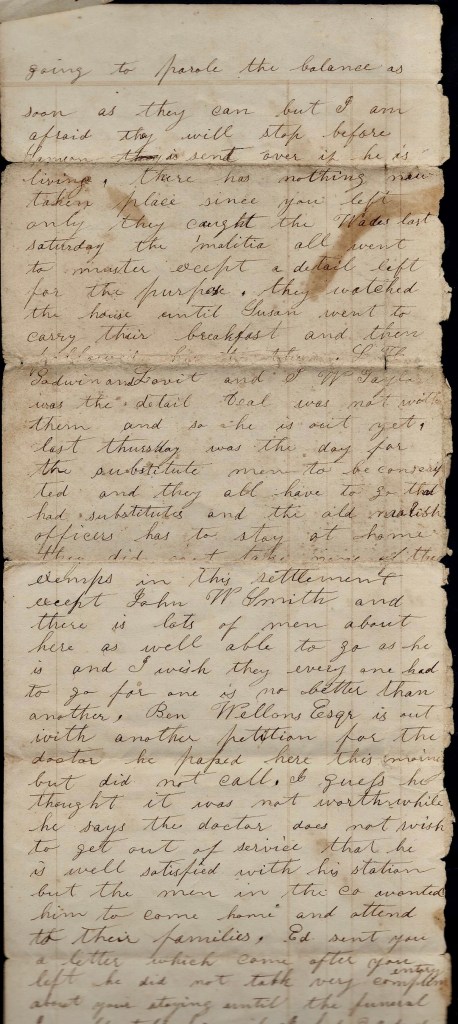 going to parole the balance as
soon as they can but I am
afraid they will stop before
is sent over if he is
living. there has nothing new
taken place since you left
only they caught the Wades last
saturday the malitia all went
to muster except a detail left
for the purpose. they watched
the house until Susan went to
carry their breakfast and then
Godwin and Lovit and J W Taylor
was the detail Teal was not with
them and so he is out yet.
last thursday was the day for
the substitute men to be conscrip
ted and they all have to go that
had substitutes and the old malish
officers has to stay at home
they did not take of the
exemps in this settlement
except John W Smith and
there is lots of men about
here as well able to go as he
is and I wish they every one had
to go for one is no better than
another. Ben Wellons Esqr is out
with another petition for the
doctor he passed here this morning
but did not call. I guess he
thought it was not worth while
he says the doctor does not wish
to get out of service that he
is well satisfied with his station
but the men in the co wanted
him to come home and attend
to their families. Ed sent you
a letter which come after you
left he did not talk very complimentary
about your staying until the funeral